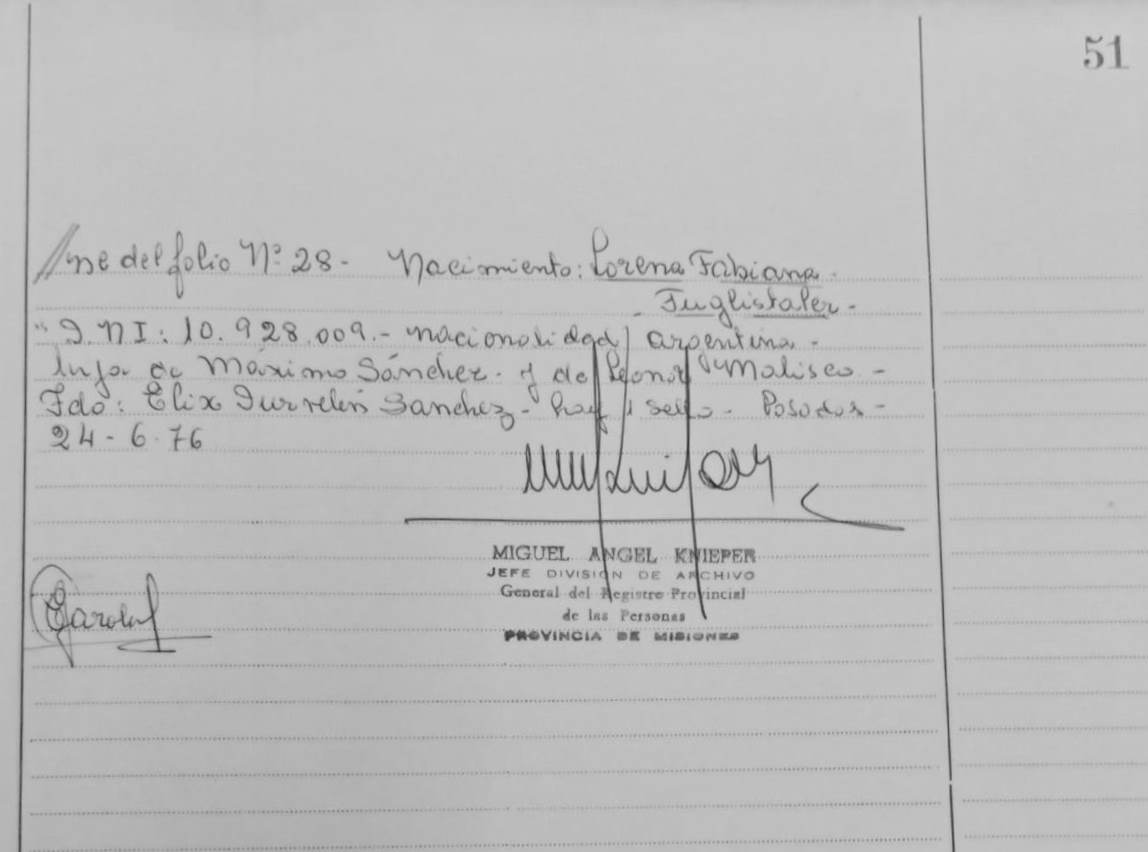 51
ne del folio Nº 28 - Nacimiento: Lorena Fabiana -
- Fuglistaler -
D.NI: 10.928.009.- nacionalidad argentina -
hija de Máximo Sánchez - y de Leonor -
Fdo: Sanchez - hay 1 sello - Posadas -
24-6-76
MIGUEL ANGEL KNIEPER
JEFE DIVISION DE ARCHIVO
General del Registro Provincial
de las Personas
PROVINCIA DE MISIONES